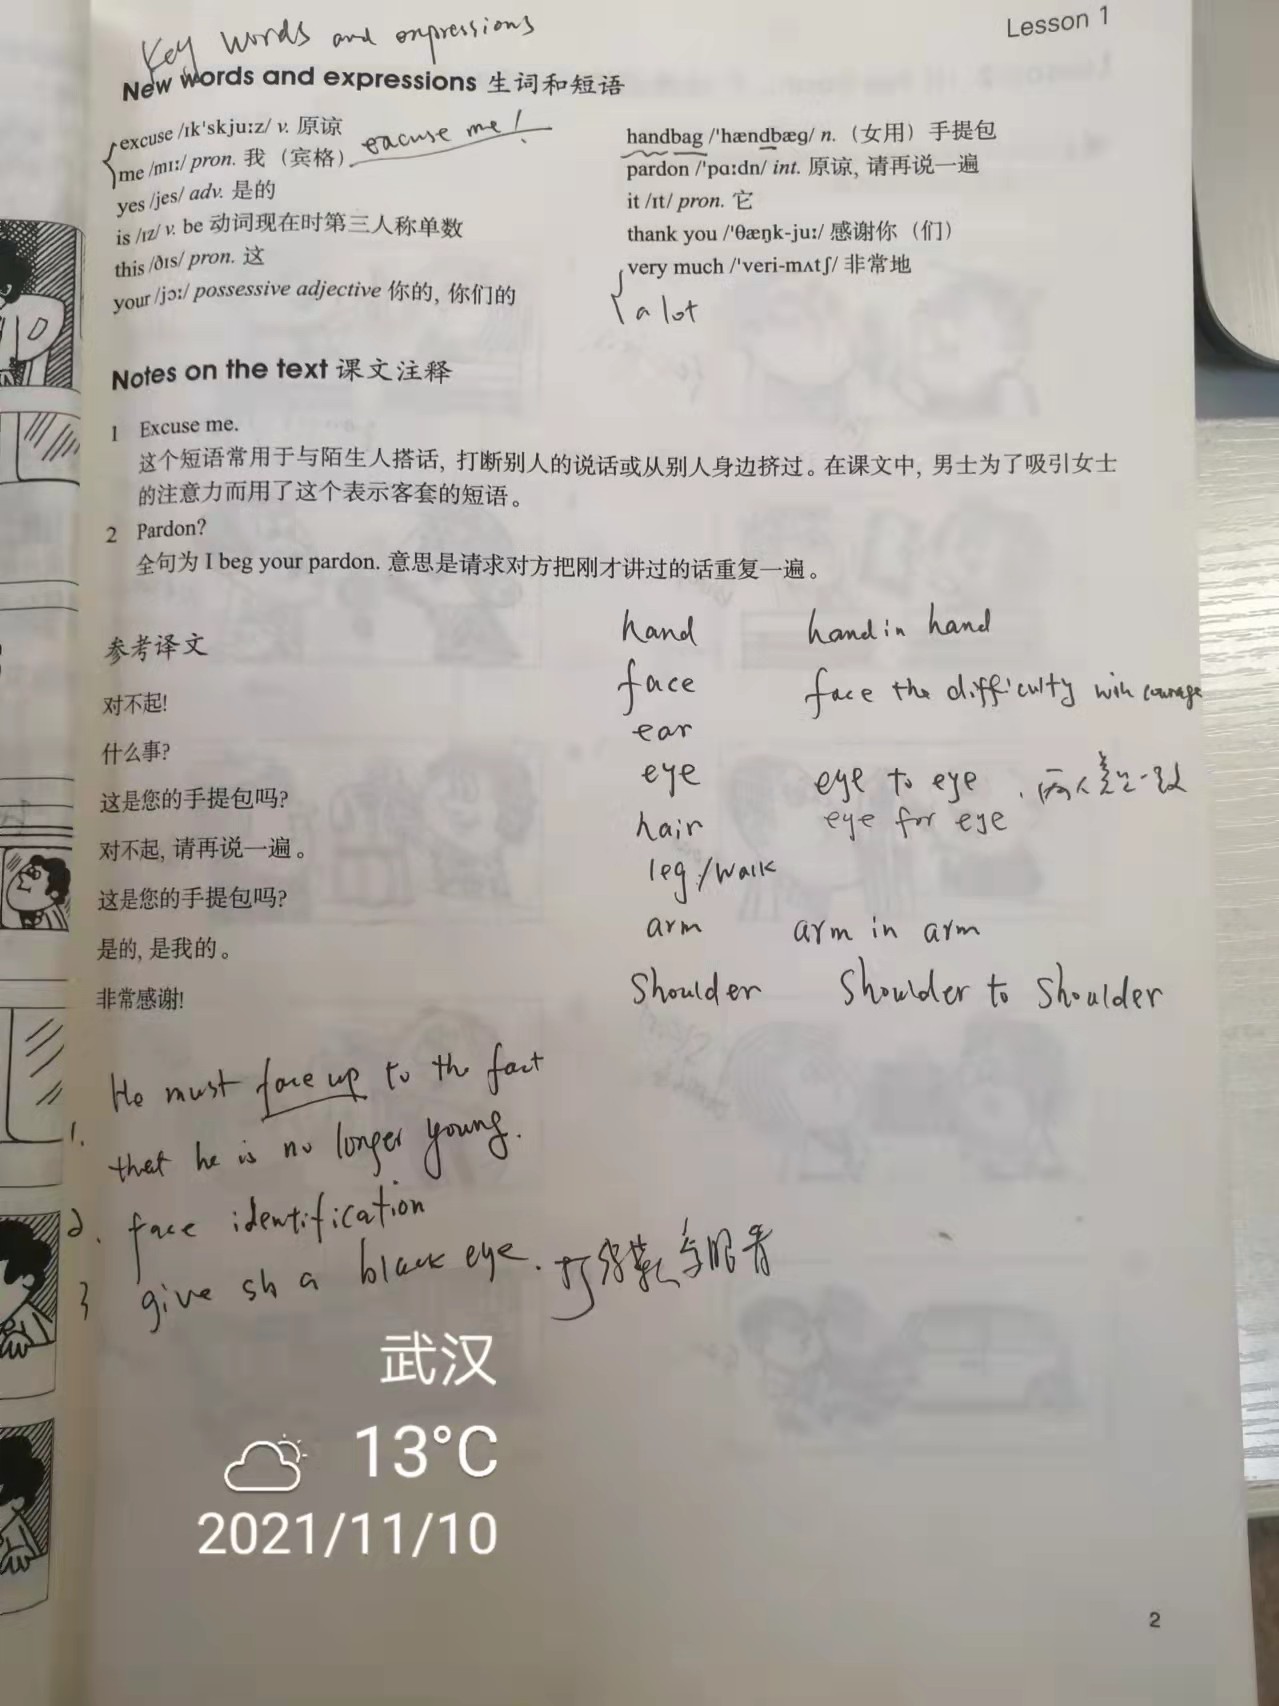 Key words and expressions
Lesson 1
New words and expressions 生词和短语
excuse /ɪk'skjuːz/ v. 原谅
me /mɪː/ pron. 我（宾格）
excuse me!
yes /jes/ adv. 是的
is /ɪz/ v. be 动词现在时第三人称单数
this /ðɪs/ pron. 这
your /jɔː/ possessive adjective 你的, 你们的
handbag /'hændbæg/ n.（女用）手提包
pardon /'pɑːdn/ int. 原谅, 请再说一遍
it /ɪt/ pron. 它
thank you /'θæŋk-juː/ 感谢你（们）
very much /'veri-mʌtʃ/ 非常地
a lot
Notes on the text 课文注释
1 Excuse me.
这个短语常用于与陌生人搭话, 打断别人的说话或从别人身边挤过。在课文中, 男士为了吸引女士
的注意力而用了这个表示客套的短语。
2 Pardon?
全句为 I beg your pardon. 意思是请求对方把刚才讲过的话重复一遍。
参考译文
对不起!
什么事?
这是您的手提包吗?
对不起, 请再说一遍。
这是您的手提包吗?
是的, 是我的。
非常感谢!
hand hand in hand
face face the difficulty with courage
ear
eye eye to eye . 两人意见一致
hair eye for eye
leg /walk
arm arm in arm
shoulder shoulder to shoulder
He must face up to the fact
1. that he is no longer young.
2. face identification
3 give sb a black eye. 打得某人鼻眼青
武汉
13°C
2021/11/10
2